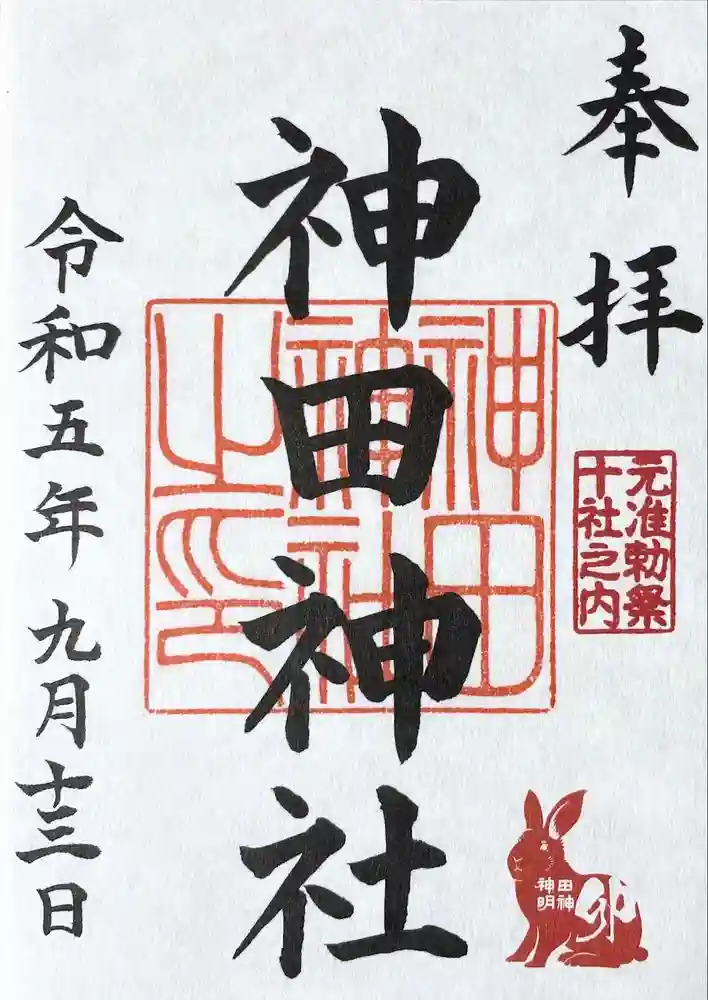 奉拝
元准勅祭
十社之内
神田神社
神田
神社
之印
田神
神明
卯
令和五年九月十三日